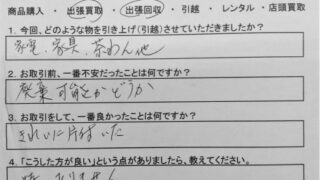 商品購入 ・ 出張買取 ・ 出張回収 ・ 引越 ・ レンタル ・ 店頭買取
1. 今回、どのような物を引き上げ(引越)させていただきましたか?
家電、家具、茶わん他
2. お取引前、一番不安だったことは何ですか?
廃棄可能かどうか
3. お取引をして、一番良かったことは何ですか?
きれいに片付いた
4. 「こうした方が良い」という点がありましたら、教えてください。